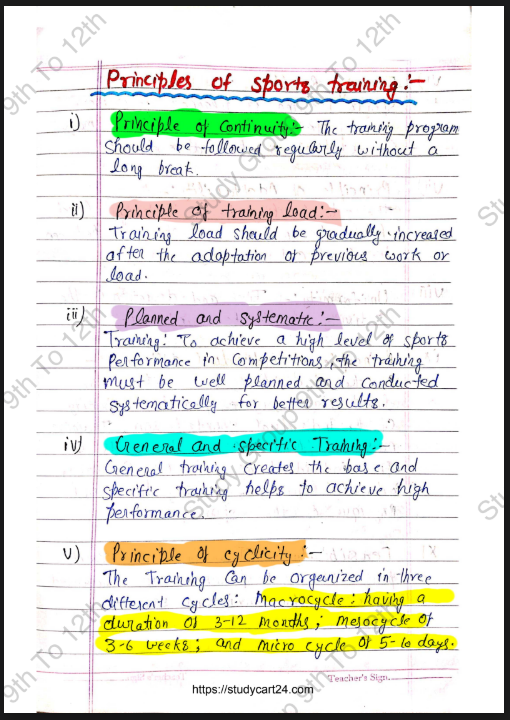 Principles of sports training:-
i) Principle of Continuity:- The training program
should be followed regularly without a
long break.
ii) Principle of training load:-
Training load should be gradually increased
after the adaptation of previous work or
load.
iii) Planned and systematic:-
Training: To achieve a high level of sports
Performance in Competitions, the training
must be well planned and conducted
systematically for better results.
iv) General and specific Training:-
General training creates the base and
specific training helps to achieve high
performance.
v) Principle of cyclicity:-
The Training Can be organized in three
different cycles: Macrocycle: having a
duration of 3-12 months; Mesocycle of
3-6 weeks; and micro cycle of 5-10 days.
Teacher's Sign
https://studycart24.com
9th To 12th
9th To 12th
Study Group 9th To 12th
9th To 12th
Study Group 9th To 12th
9th To 12th